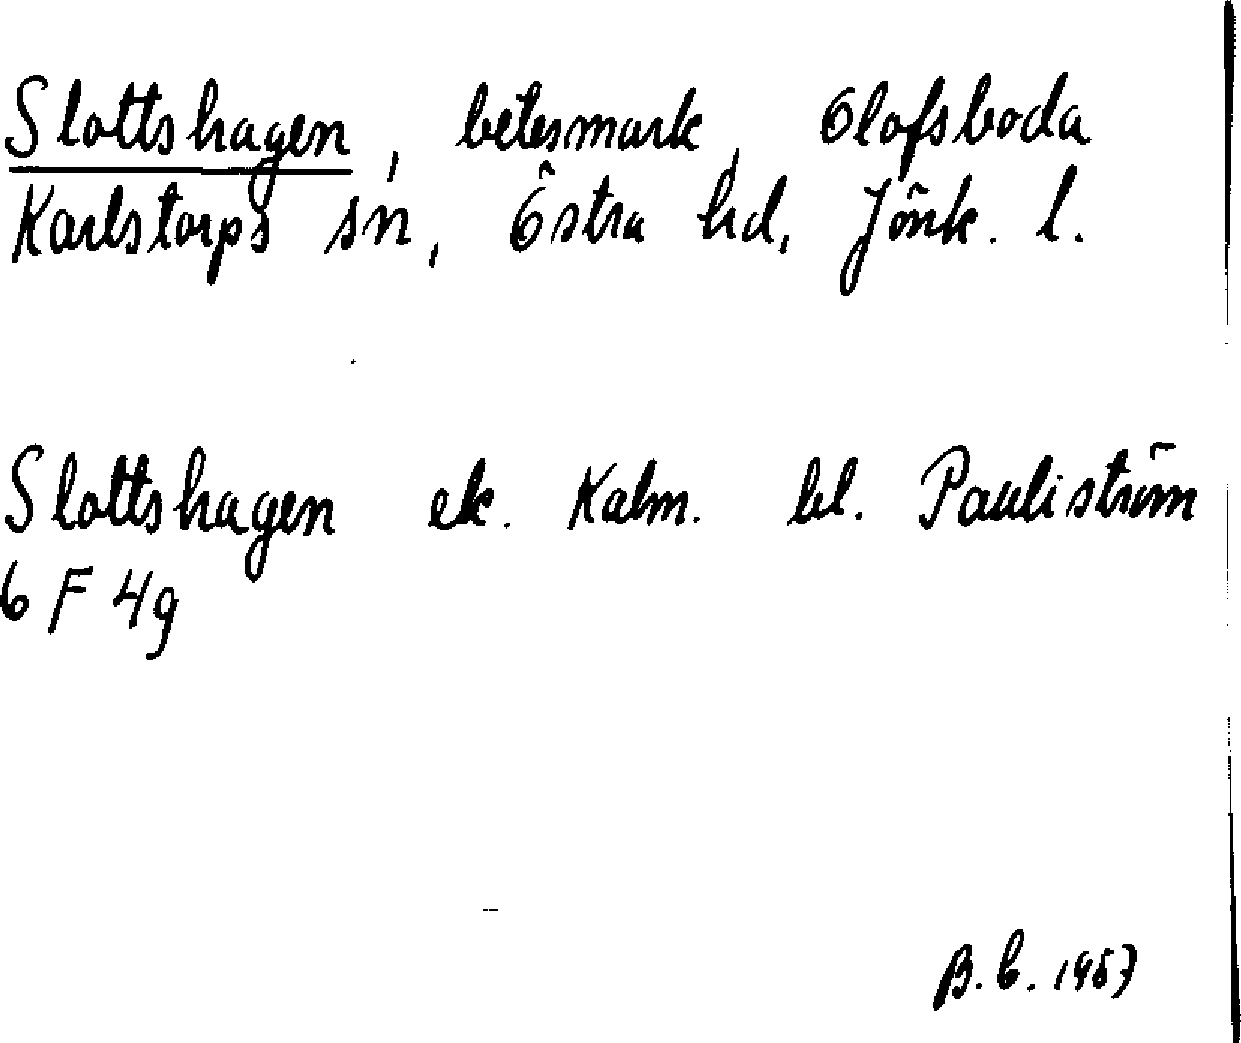 Slottshagen, betesmark, Olofsboda
Karlstorps sn, Östra hd, Jönk. l.
Slottshagen ek. Kalm. bl. Pauliström
6 F 4g
B.C. 1957